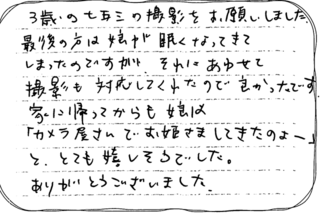 3歳の七五三の撮影をお願いしました
最後の方は娘が眠くなってきて
しまったのですが、それにあわせて
撮影も対応してくれたので良かったです
家に帰ってからも娘は
「カメラ屋さんでお姫さましてきたのよー」
と、とても嬉しそうでした。
ありがとうございました。